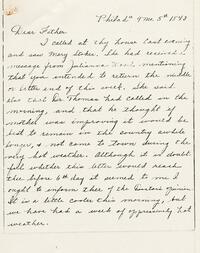 Philada 9 Mo. 5th 1893
Dear Father
I called at thy house last evening
and saw Mary Stokes. She had received a
message from Julianna Wood, mentioning
that you intended to return the middle
or latter end of this week. She said
also that Dr Thomas had called in the
morning, and that he thought if
mother was improving it would be
best to remain in the country awhile
longer, & not come to town during the
very hot weather. Although it is doubt-
ful whether this letter would reach
thee before 6th day it seemed to me I
ought to inform thee of the Doctor's opinion
It is a little cooler this morning, but
we have had a week of oppressively hot
weather.